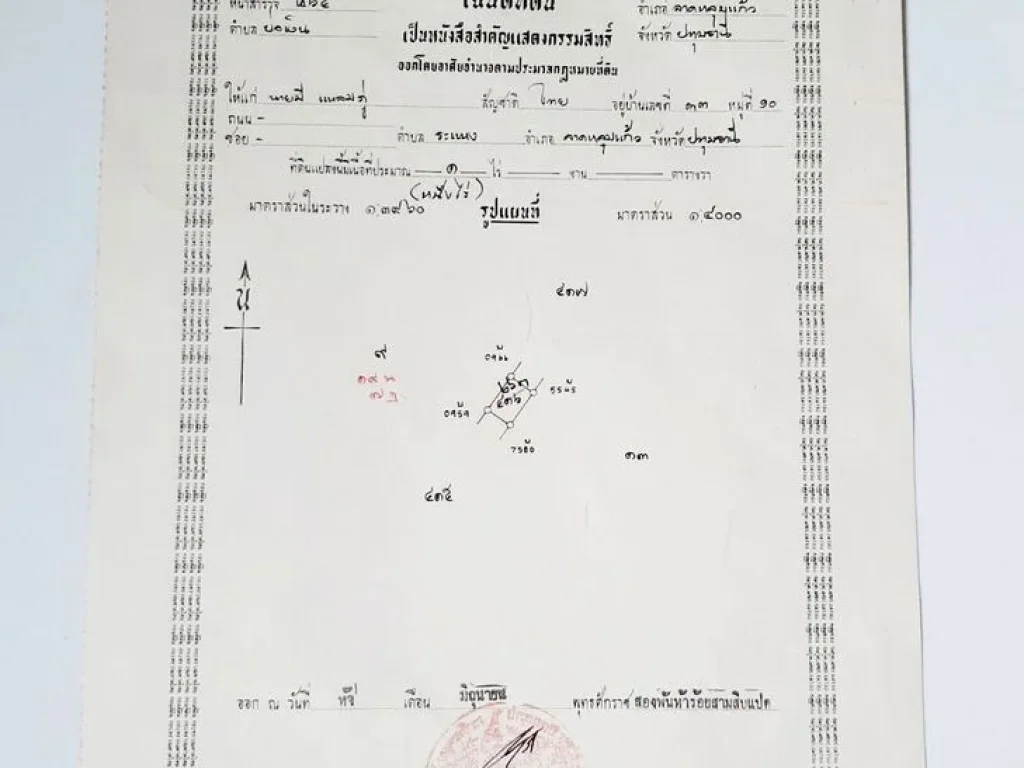 หน้าสำรวจ
โฉนดที่ดิน
อำเภอ ลาดหลุมแก้ว
ตำบล
เป็นหนังสือสำคัญแสดงกรรมสิทธิ์
จังหวัด ปทุมธานี
ออกโดยอาศัยอำนาจตามประมวลกฎหมายที่ดิน
ให้แก่ นายมี สัญชาติ ไทย อยู่บ้านเลขที่ ๓๓ หมู่ที่ ๑๐
ถนน -
ซอย - ตำบล ระแหง อำเภอ ลาดหลุมแก้ว จังหวัด ปทุมธานี
ที่ดินแปลงนี้มีเนื้อที่ประมาณ ๑ ไร่ งาน ตารางวา
(หนึ่งไร่)
มาตราส่วนในระวาง รูปแผนที่ มาตราส่วน ๑:๔๐๐๐
น
๔๑๗
๙
๔๑๖
๑๓
๔๑๕
ออก ณ วันที่ เดือน มิถุนายน พุทธศักราช สองพันห้าร้อยสามสิบแปด